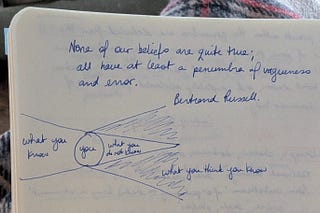 None of our beliefs are quite true;
all have at least a penumbra of vagueness
and error.
Bertrand Russell.
what you
know
you
what you
do not know
what you think you know